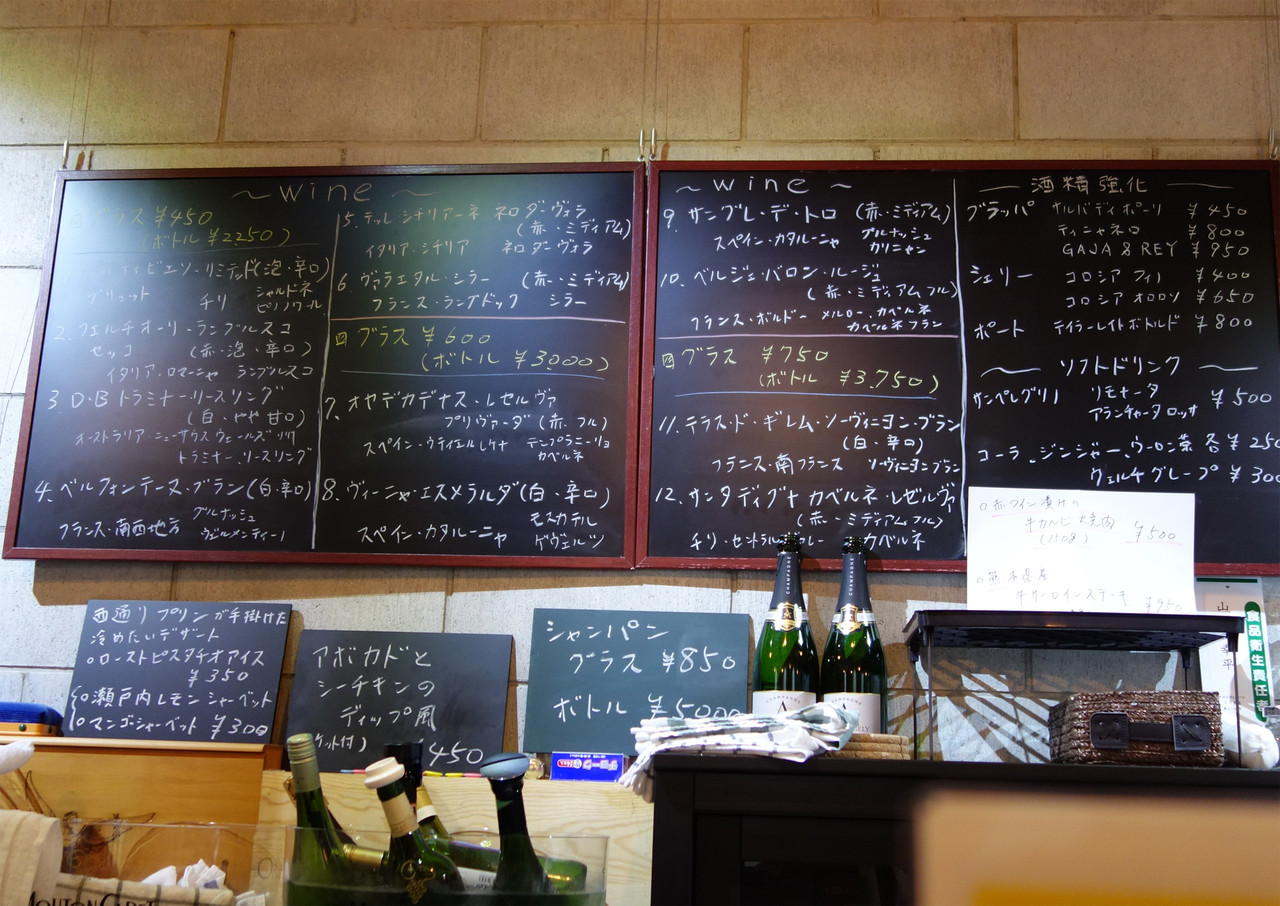 ～wine～
グラス ¥450
(ボトル ¥2250)
リミテッド(泡・辛口)
ブリュット チリ シャルドネ
ピノノワール
2. ランブルスコ
セッコ (赤・泡・辛口)
イタリア・ロマーニャ ランブルスコ
3. D・B トラミナー・リースリング
(白・やや甘口)
オーストラリア・ニューサウスウェールズ
トラミナー、リースリング
4. ベルフォンテーヌ・ブラン(白・辛口)
フランス・南西地方 グルナッシュ
ヴェルメンティーノ
5. テッレ・シチリアーネ ネロダーヴォラ
(赤・ミディアム)
イタリア・シチリア ネロダーヴォラ
6. ヴァラエタル・シラー (赤・ミディアム)
フランス・ラングドック シラー
グラス ¥600
(ボトル ¥3,000)
7. オヤデカデナス・レセルヴァ
プリヴァーダ (赤、フル)
スペイン・ウティエルレケナ テンプラニーリョ
カベルネ
8. ヴィーニャ・エスメラルダ(白・辛口)
スペイン・カタルーニャ モスカテル
ゲヴェルツ
～wine～
9. サングレ・デ・トロ (赤・ミディアム)
スペイン・カタルーニャ グルナッシュ
カリニャン
10. ベルジェ・バロン・ルージュ
(赤・ミディアムフル)
フランス・ボルドー メルロー、カベルネ
カベルネフラン
グラス ¥750
(ボトル ¥3,750)
11. テラス・ド・ギレム・ソーヴィニヨン・ブラン
(白・辛口)
フランス・南フランス ソーヴィニヨンブラン
12. サンタディグナ カベルネ・レゼルヴァ
(赤・ミディアムフル)
チリ・セントラルヴァレー カベルネ
酒精強化
グラッパ サルバディポーリ ¥450
ティニャネロ ¥800
GAJA & REY ¥950
シェリー コロシア フィノ ¥400
コロシア オロロソ ¥650
ポート テイラーレイトボトルド ¥800
～ソフトドリンク～
サンペレグリノ リモナータ
アランチャータロッサ ¥500
コーラ、ジンジャー、ウーロン茶 各¥250
ウェルチグレープ ¥300
○赤ワイン漬けの
牛カルビ焼肉
(150g) ¥500
○熊本県産
牛サーロインステーキ
¥950
西通りプリンが手掛けた
冷めたいデザート
○ローストピスタチオアイス
¥350
○瀬戸内レモンシャーベット
○マンゴシャーベット ¥300
アボカドと
シーチキンの
ディップ風
ケット付) 450
シャンパン
グラス ¥850
ボトル ¥5000
CHAMPAGNE
CHAMPAGNE
食品衛生責任者
山
幸平
MOUTON CADET